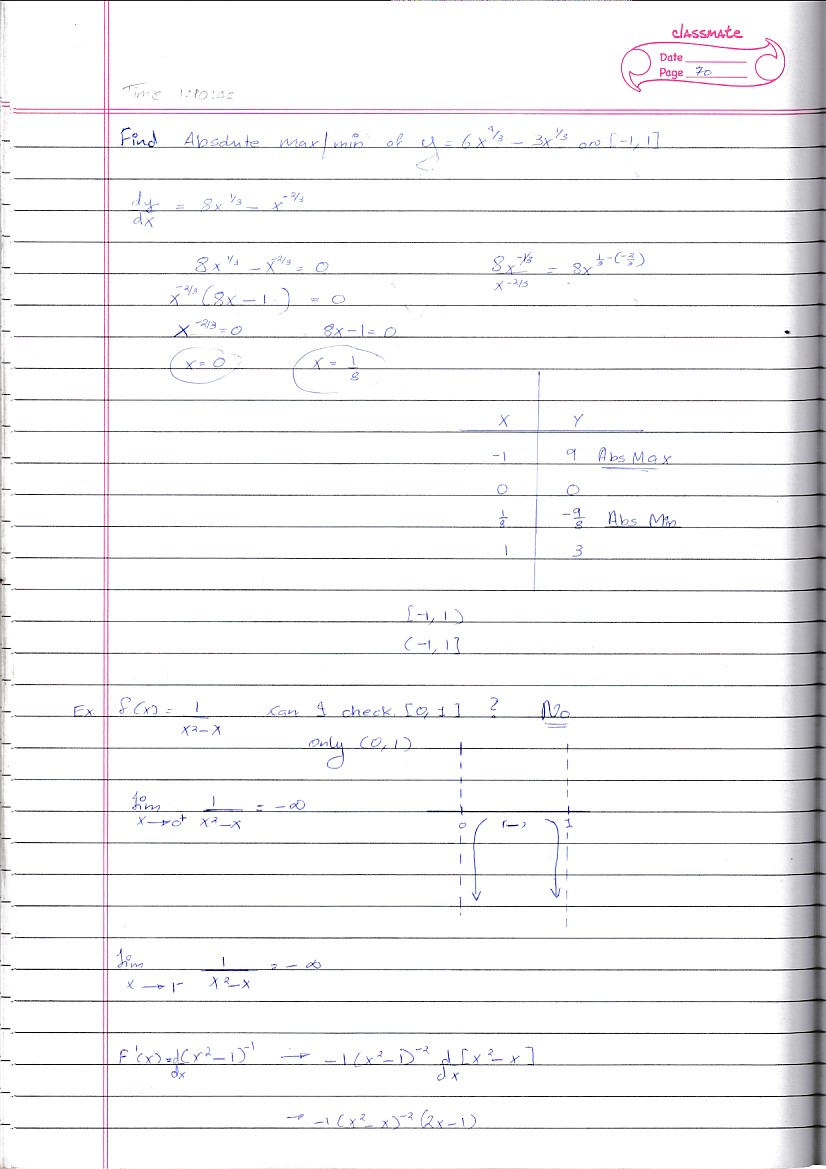 classmate
Date
Page 70
Time 1:10:42
Find Absolute max/min of y = 6x^4/3 - 3x^1/3 on [-1, 1]
dy/dx = 8x^1/3 - x^-2/3
8x^1/3 - x^-2/3 = 0
8x^-1/3 / x^-2/3 = 8x^1/3-(-2/3)
x^-2/3 (8x - 1) = 0
x^-2/3 = 0 8x-1 = 0
x = 0 x = 1/8
X Y
-1 9 Abs Max
0 0
1/8 -9/8 Abs Min
1 3
[-1, 1)
(-1, 1]
Ex. f(x) = 1/x²-x can I check [0, 1] ? No
only (0, 1)
lim x→0+ 1/x²-x = -∞
0 (-) 1
lim x→1- 1/x²-x = -∞
F'(x) = d/dx (x²-1)^-1 → -1(x²-1)^-2 d/dx [x²-x]
→ -1(x²-x)^-2 (2x-1)